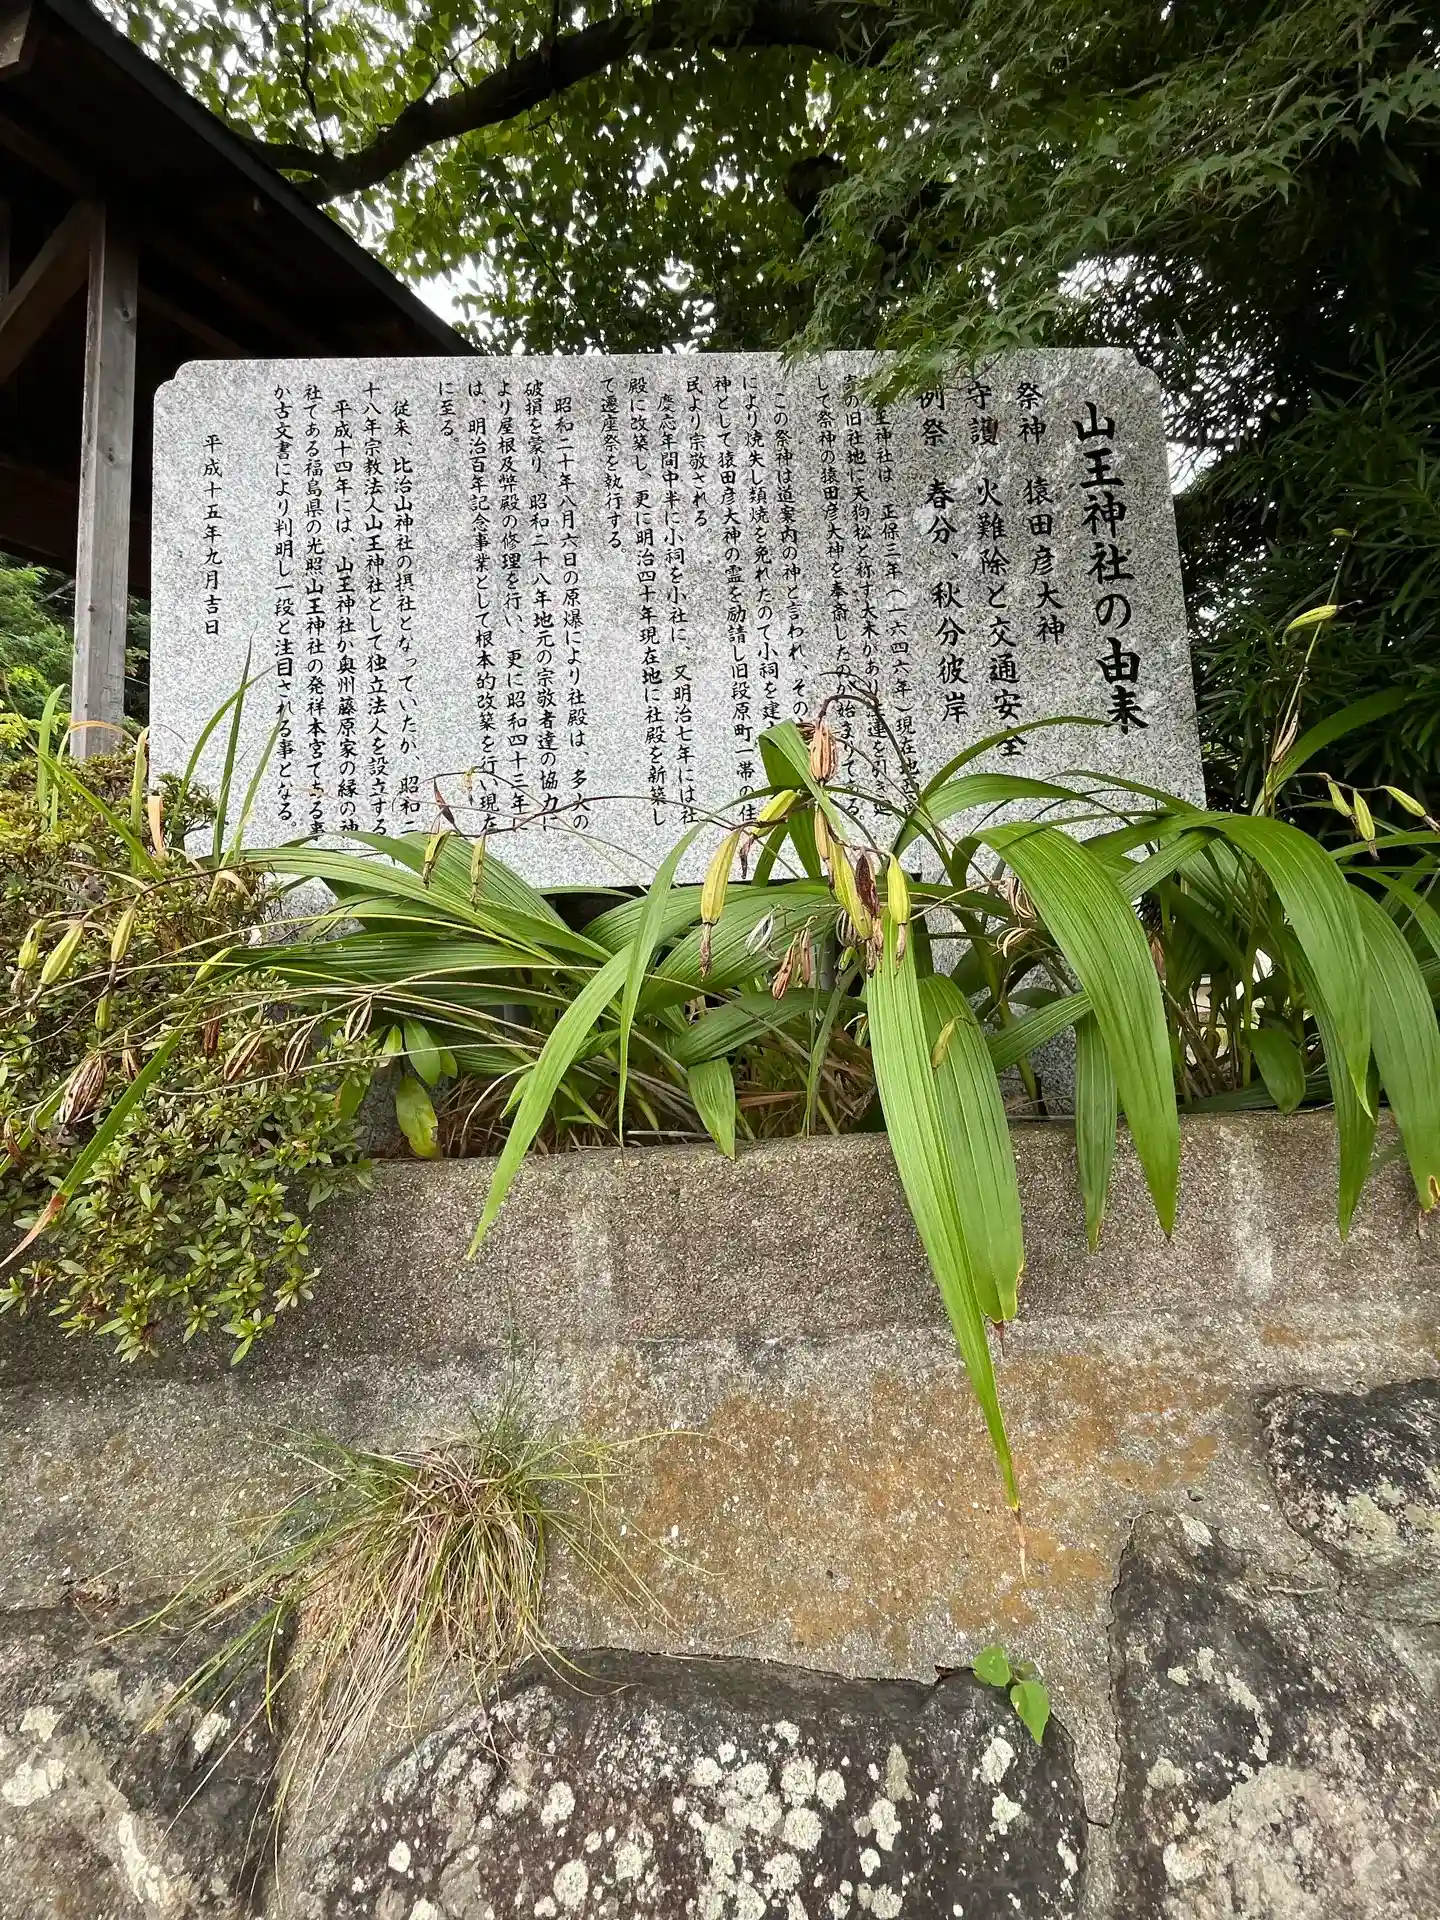 山王神社の由来
祭神 猿田彦大神
守護 火難除と交通安全
例祭 春分、秋分彼岸
王神社は、正保三年(一六四六年)現在地
の旧社地に天狗松と称す大木があり 運を引き
して祭神の猿田彦大神を奉斎したのが始まりである
この祭神は道案内の神と言われ、その
により焼失し類焼を免れたので小祠を建
神として猿田彦大神の霊を勧請し旧段原町一帯の住
民より宗敬される
慶応年間中半に小祠を小社に、又明治七年には社
殿に改築し、更に明治四十年現在地に社殿を新築し
て遷座祭を執行する。
昭和二十年八月六日の原爆により社殿は、多大の
破損を蒙り、昭和二十八年地元の宗敬者達の協力に
より屋根及幣殿の修理を行い、更に昭和四十三年に
は、明治百年記念事業として根本的改築を行い現在
に至る。
従来、比治山神社の摂社となっていたが、昭和二
十八年宗教法人山王神社として独立法人を設立する
平成十四年には、山王神社が奥州藤原家の縁の神
社である福島県の光照山王神社の発祥本宮である事
が古文書により判明し一段と注目される事となる。
平成十五年九月吉日